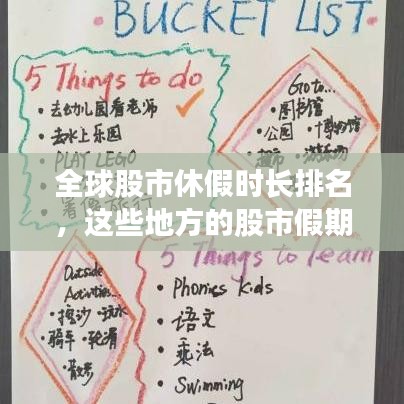 BUCKET LIST.
5 Things to do
• 去幼儿园看老师
• 去水上乐园
PLAY LEGO
Go to...
• 图书馆
• 公园 • 博物馆
全球股市休假时长排名
，这些地方的股市假期
5 Things to learn
• Phonics kids
• 语文
• 乘法
• Swimming
Outside
Activities...
• 挖沙 • 玩水
• 骑车 • 轮滑